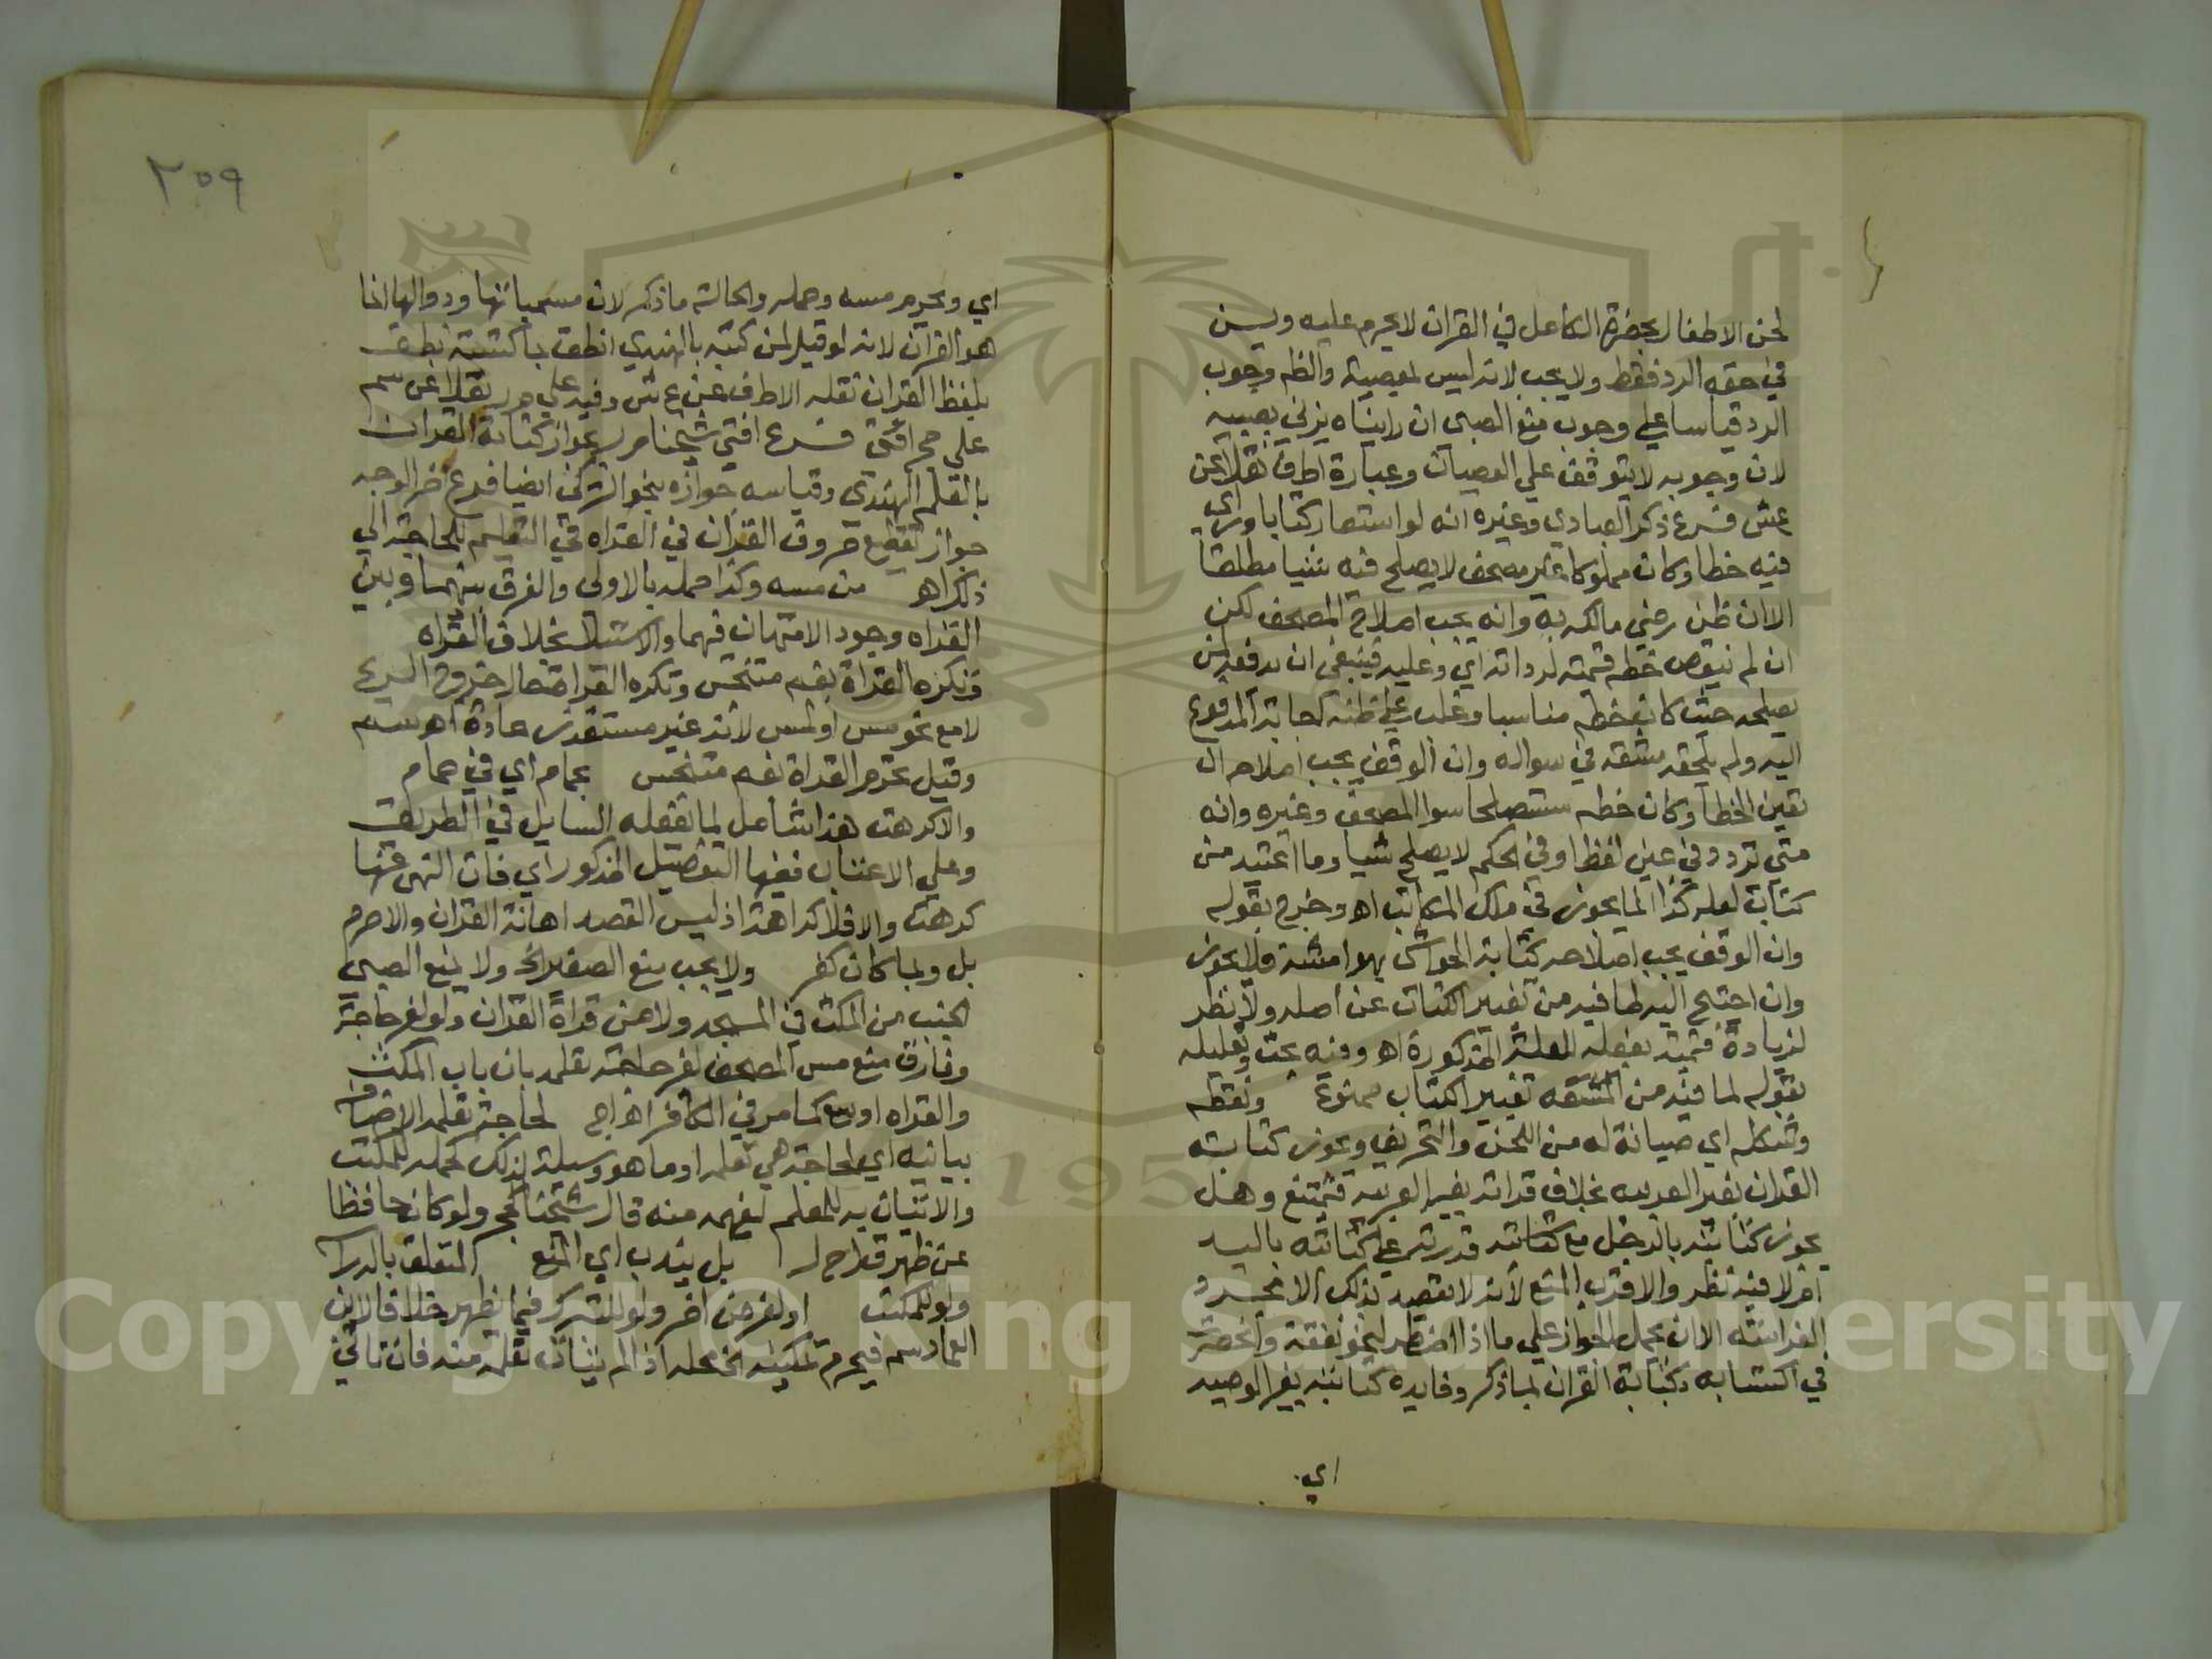 لحن الاطفال بحضرة الكامل في القران لا يحرم عليه ويسن
في حقه الرد فقط ولا يجب لانه ليس لمعصية والظم وجوب
الرد قياسا علي وجوب منع الصبي ان رايناه يزني بصبيه
لان وجوبه لا يتوقف علي العصيان وعبارة اطف نقلا عن
عش فرع ذكر العبادي وغيره انه لو استعار كتابا وراي
فيه خطا وكان مملوكا غير مصحف لا يصلح فيه شيا مطلقا
الا ان ظن رضي مالكه به وانه يجب اصلاح المصحف لكن
ان لم ينقص خطه قيمته لرداته اي وعليه فينبغي ان يدفعه لمن
يصلحه حيث كان خطه مناسبا وغلب علي ظنه اجابة المدفوع
اليه ولم يلحقه مشقه في سواله وان الوقف يجب اصلاحه ان
تقين الخطا وكان خطه مستصلحا سوا المصحف وغيره وانه
متي تردد في عين لفظ او في الحكم لا يصلح شيا وما اعتيد من
كتابة لعله كذا انما يجوز في ملك الكاتب اهـ وخرج بقوله
وان الوقف يجب اصلاحه كتابة الحواشي بهوامشه فلا يجوز
وان احتيج اليه لما فيه من تغيير الكتاب عن اصله ولا نظر
لزيادة قيمته بفعله للعلة المذكورة اهـ وفيه بحث وتعليله
بقوله لما فيه من المشقه تغيير الكتاب ممنوع ونقطه
وشكله اي صيانة له من اللحن والتحريف ويجوز كتابته
القران بغير العربيه بخلاف قراته بغير العربيه فيمتنع وهل
يجوز كتابته بالرجل مع كتابته قدرته علي كتابته باليد
ام لا فيه نظر والاقرب المنع لانه لا يقصد بذلك الا مجرد
الا ان يحمل الجواز علي ما اذا اضطر لنحو نفقة وانحصرت
في اكتسابه بكتابة القران لما ذكر وفايده كتابته بغير العربيه
اي
٢٥٩
اي ويحرم مسه وحمله والحالة ما ذكر لان مسمياتها ودوالها انما
هو القران لانه لو قيل لمن كتبه بالهندي انطق بما كتبته نطق
بلفظ القران نقله الاطف عن ع ش وفيه علي م ر نقلا عن سم
علي حج افتي فرع افتي شيخنا م ر بجواز كتابة القران
بالقلم الهندي وقياسه جوازه بنحو التركي ايضا فرع اخر الوجه
جواز تقطيع حروف القران في القراه في التعليم للحاجة الي
ذلك اهـ من مسه وكذا حمله بالاولى والفرق بينهما وبين
القراه وجود الامتهان فيهما والاستيلا بخلاف القراه
فتكره القراة بفم متنجس وتكره القراة حال خروج الريح
لا مع نحو مس او لمس لانه غير مستقذر عادة اهـ سم
وقيل تحرم القراة بفم متنجس بحمام اي في حمام
والا كرهت هذا شامل لما يفعله السايل في الطريق
وعلي الاعتاب ففيها التفصيل المذكور اي فان التهي عنها
كرهت والا فلا كراهة اذ ليس القصد اهانة القران والا حرم
بل ربما كان كفر ولا يجب منع الصغير الخ ولا يمنع الصبي
الجنب من المكث في المسجد ولا من قراة القران ولو لغير حاجة
وفارق منع مس المصحف لغير حاجة تعلمه بان باب المكث
والقراه اوسع كما مر في الكافر اهـ اج لحاجة تعلمه الاضافة
بيانيه اي لحاجة هي تعلمه او ما هو وسيلة لذلك كحمله للمكتب
والاتيان به للمعلم ليفهمه منه قال شيخنا حج ولو كان حافظا
عن ظهر قلب اهـ م ر بل يندب اي المنع المتعلق بالدراسة
ولو للمكتب او لغرض اخر ولو للتبرك فيما يظهر خلافا لابن
العماد سم فيحرم تمكينه الخ محله اذا لم يتات تعلمه منه فان تاتي